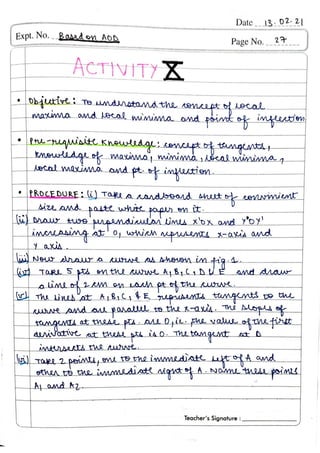 Date 13.02.21
Expt. No. Based on AOD
Page No. 27
ACTIVITY X
• Objective: To understand the concept of local
maxima and local minima and point of inflection.
• Pre-requisite Knowledge: concept of tangents,
knowledge of maxima, minima, local minima,
local maxima and pt of inflection.
• PROCEDURE: (i) Take a cardboard sheet of convinient
size and paste white paper on it.
(ii) Draw two perpendicular lines X'OX and Y'OY'
intersecting at O, which represents x-axis and
Y axis.
(iii) Now draw a curve as shown in fig 1.
(iv) TAKE 5 pts on the curve A, B, C, D & E and draw
a line of 2 cm on each pt of the curve.
(v) The lines at A, B, C, & E represents tangents to the
curve and are parallel to the x-axis. The slopes of
tangents at these pts. are 0, ie. the value of the first
derivative at these pts is 0. The tangent at D
intersects the curve.
(vi) TAKE 2 points, one to the immediate left of A and
other to the immediate right of A. Name these points
A1 and A2.
Teacher's Signature :